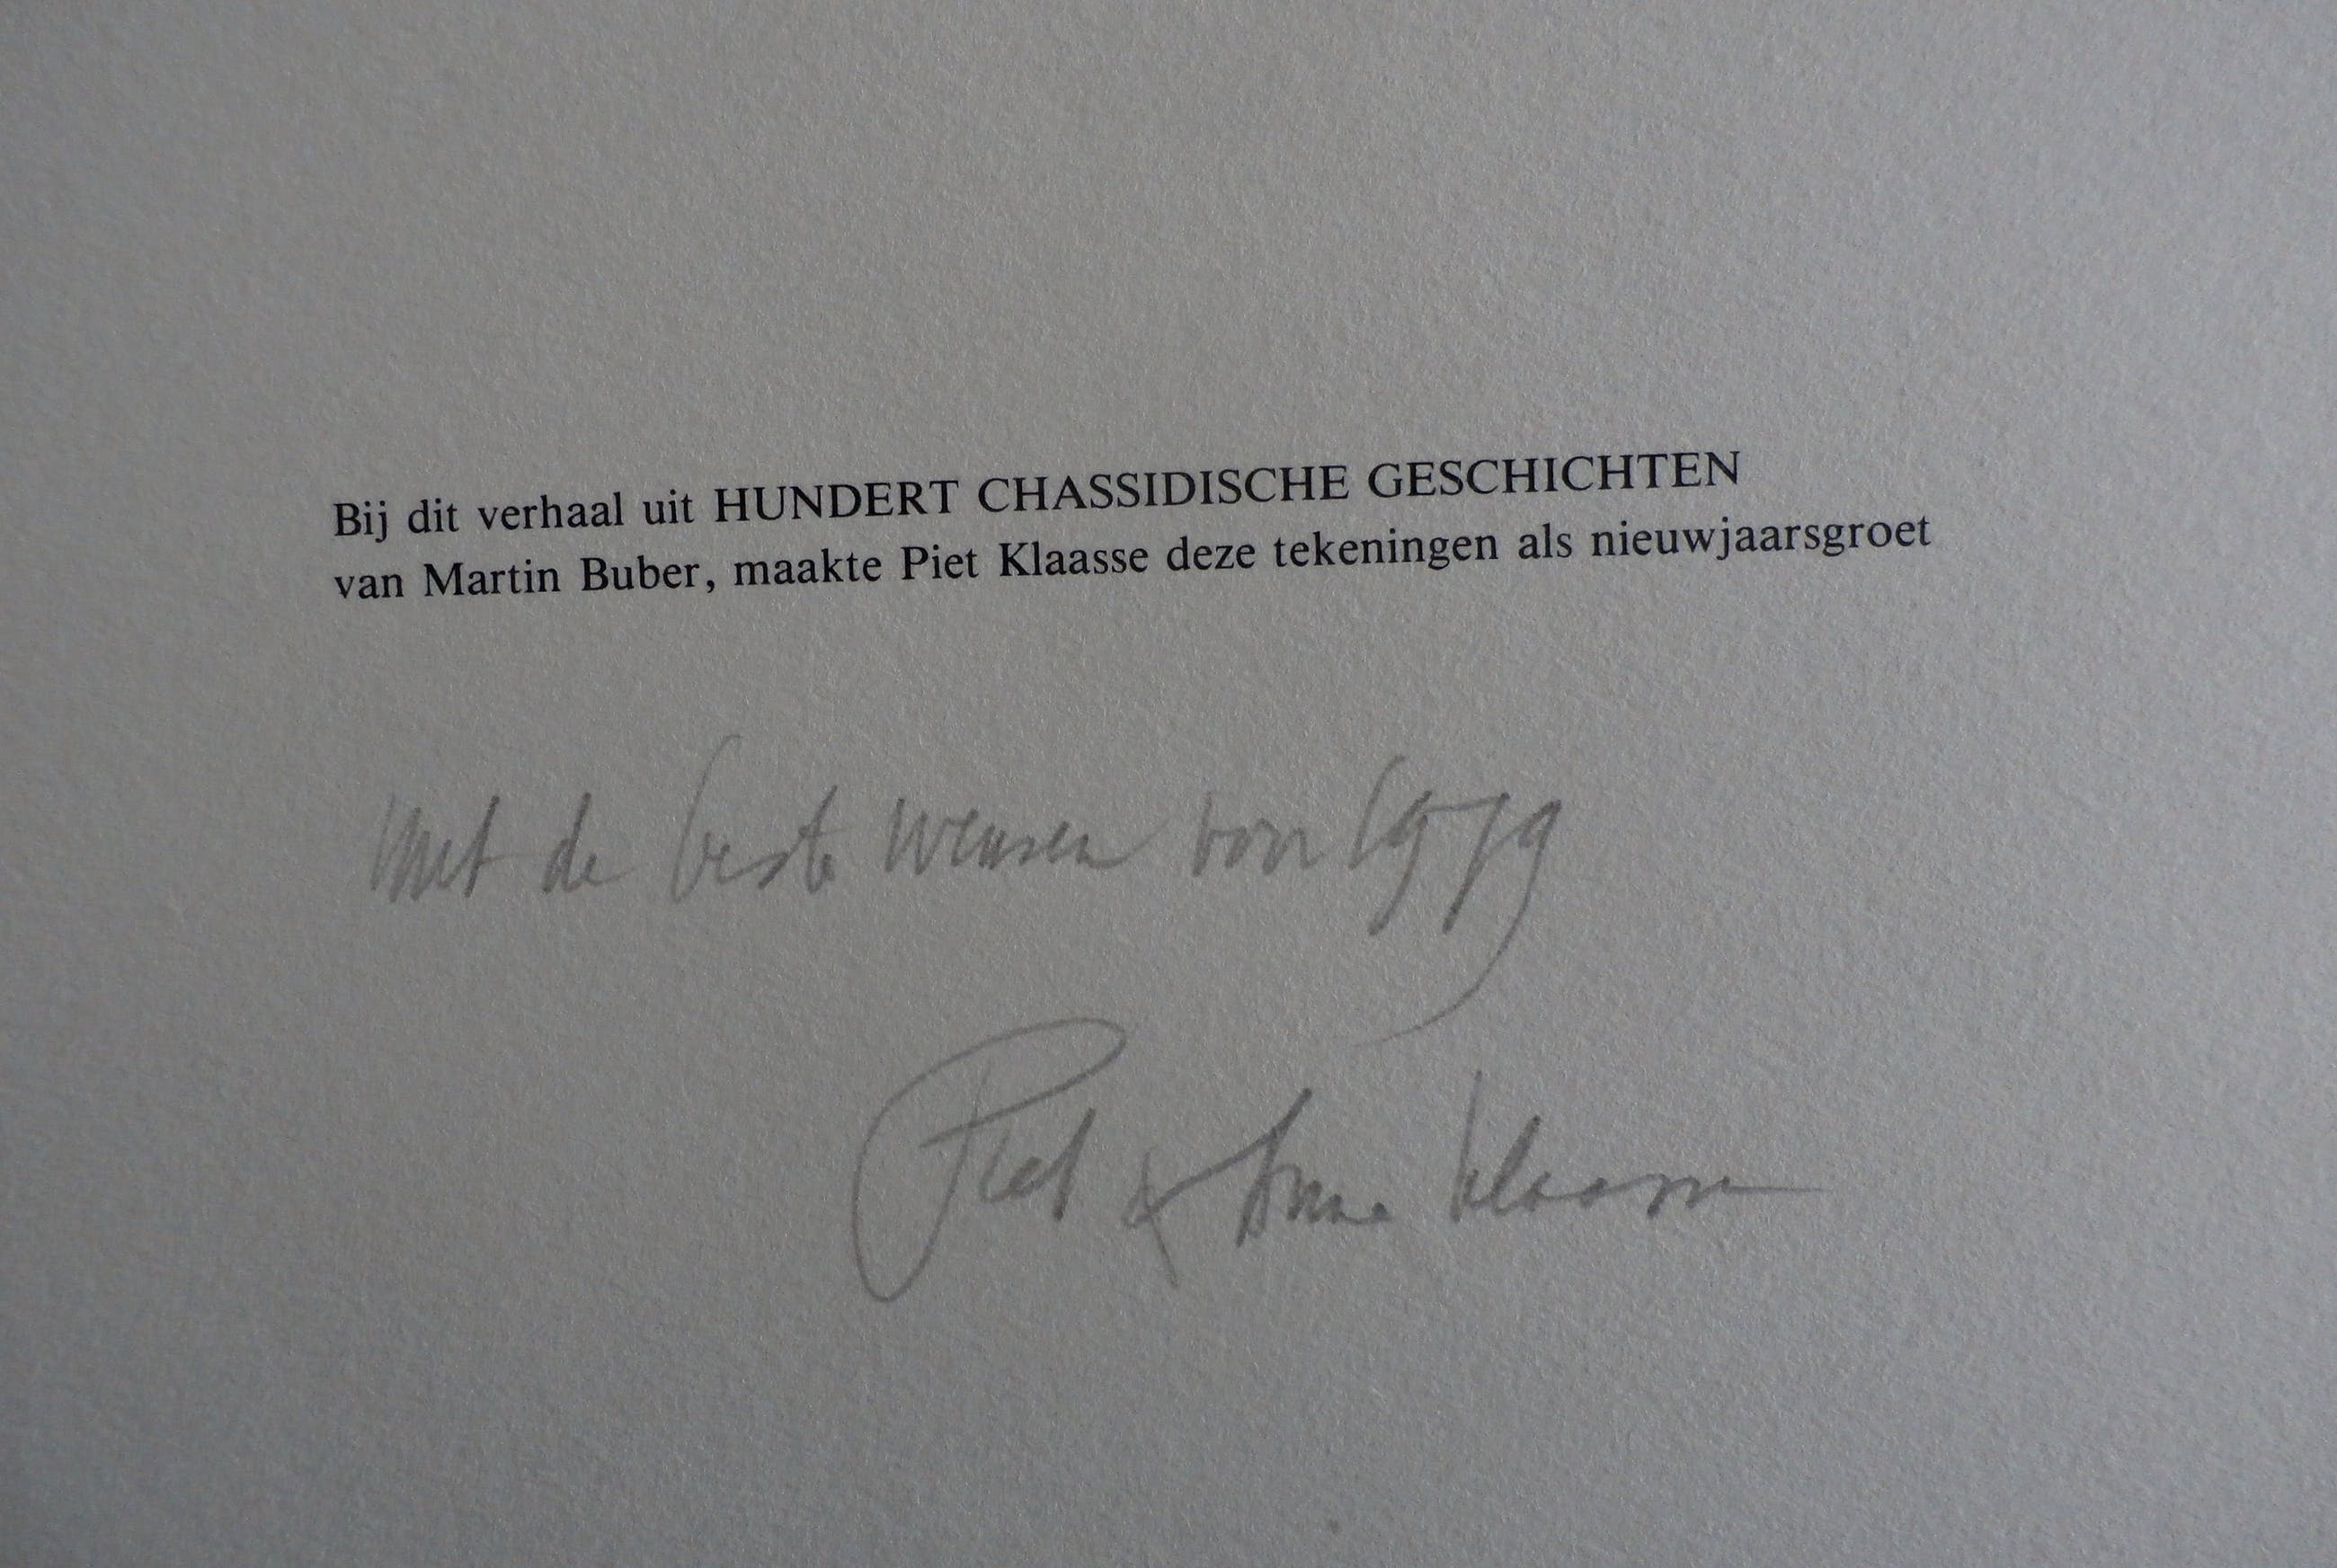 Bij dit verhaal uit HUNDERT CHASSIDISCHE GESCHICHTEN
van Martin Buber, maakte Piet Klaasse deze tekeningen als nieuwjaarsgroet
Met de beste wensen voor 1979
Piet & Anne Klaasse